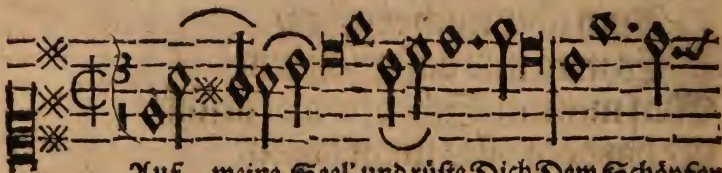 Auf, meine Seel' und rüste Dich Dem Schöpfer